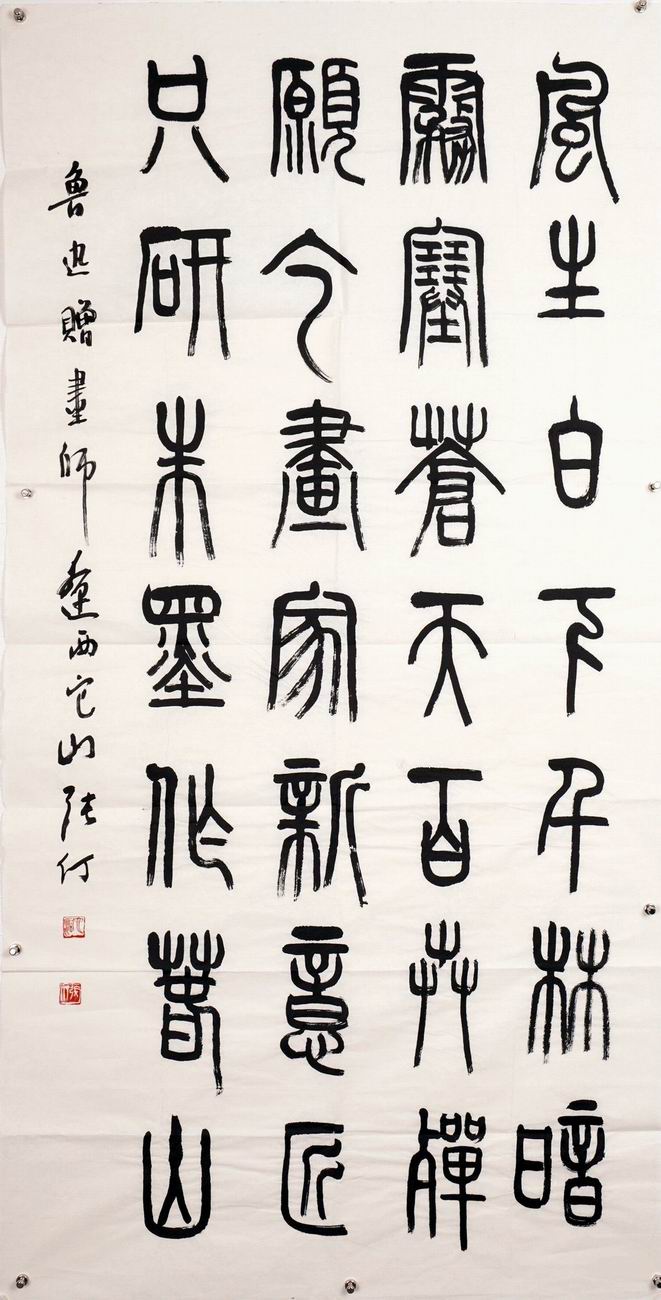 風生白下千林暗
霧塞蒼天百卉殫
願今畫家新意匠
只研朱墨作春山
魯迅贈畫師 遼西它山張仃